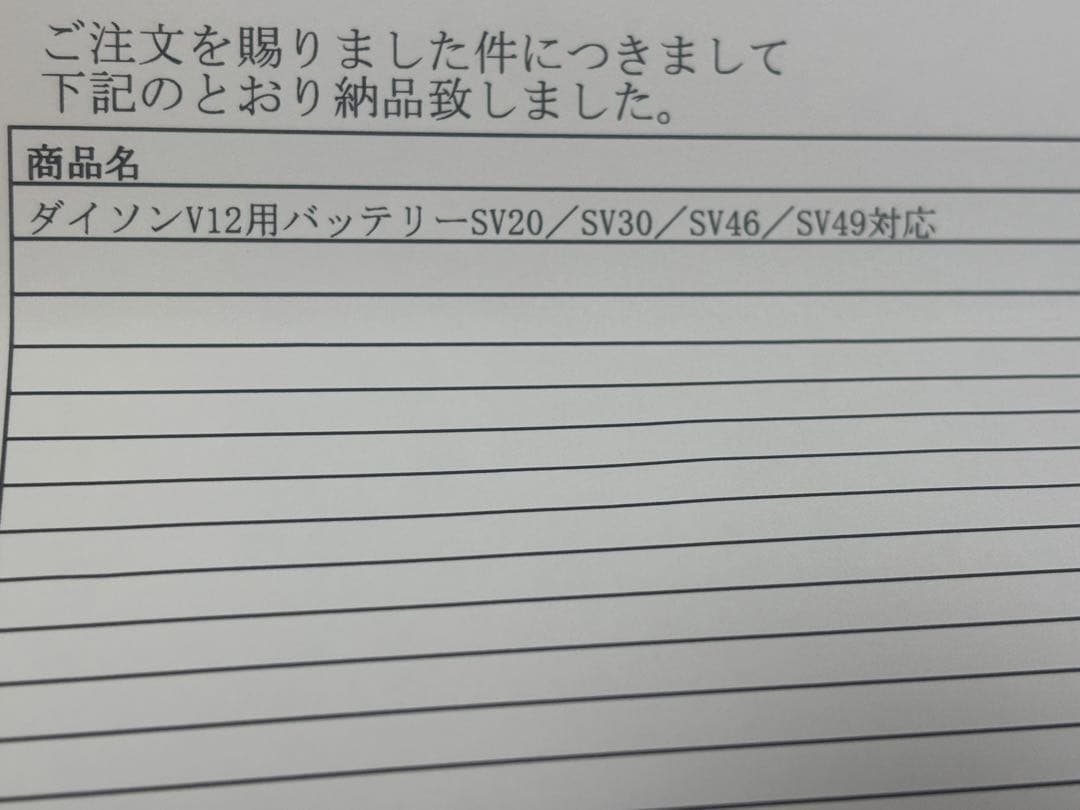 ご注文を賜りました件につきまして
下記のとおり納品致しました。
商品名
ダイソンV12用バッテリーSV20／SV30／SV46／SV49対応